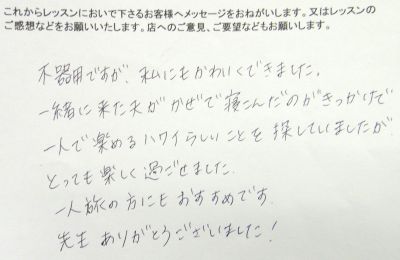 これからレッスンにおいで下さるお客様へメッセージをおねがいします。又はレッスンの
ご感想などをお願いいたします。店へのご意見、ご要望などもお願いします。
不器用ですが、私にもかわいくできました。
一緒に来た夫がかぜで寝こんだのがきっかけで
一人で楽めるハワイらしいことを探していましたが
とっても楽しく過ごせました。
一人旅の方にもおすすめです。
先生ありがとうございました!